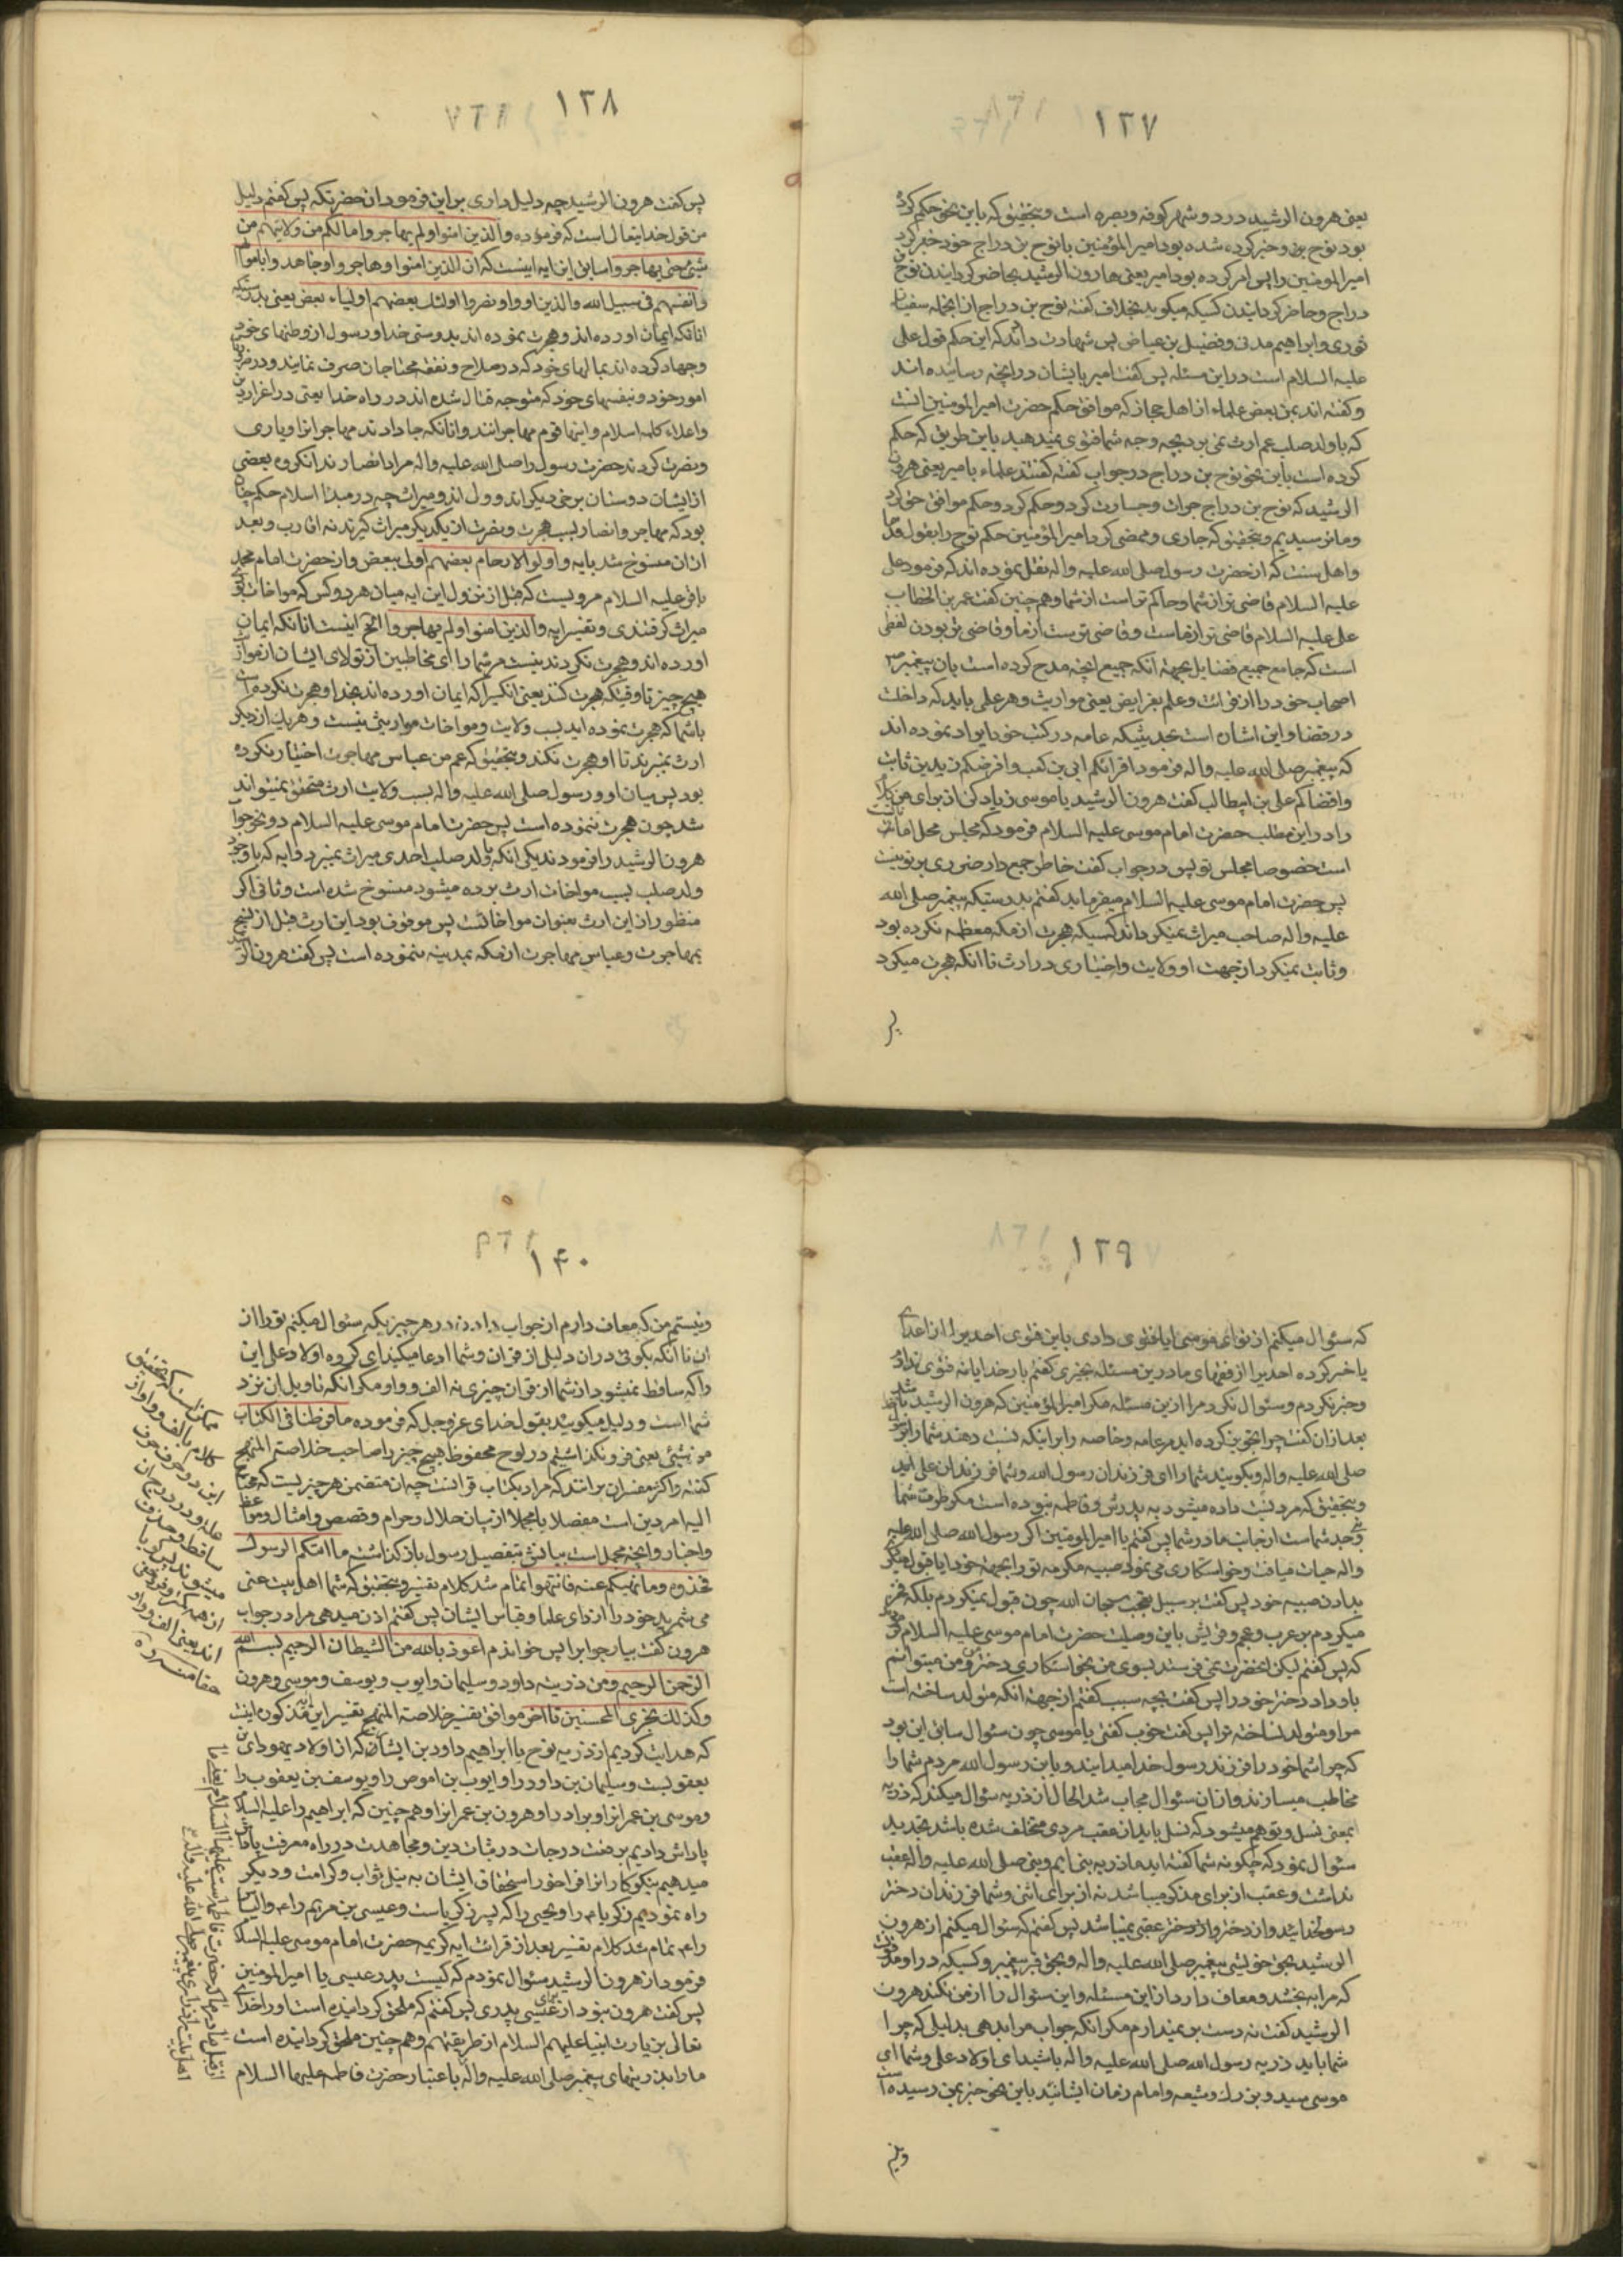 ١٣٧
یعنی هرون الرشید در دو شهر کوفه و بصره است و بتحقیق که باین نحو حکم کرد
بود نوح بن و خبر کرده شده بود امیر المؤمنین با نوح بن دراج خود خبر کرد
امیر المومنین را پس امر کرده بود امیر یعنی هارون الرشید بحاضر کردایندن نوح
دراج و حاضر کردایندن کسیکه میکوید بخلاف کفته نوح بن دراج از انجمله سفیان
ثوری و ابراهیم مدنی و فضیل بن عیاض پس شهادت دادند که این حکم قول علی
علیه السلام است در این مسئله پس کفت امیر بایشان در انچه رسانیده اند
و کفته اند بمن بعض علماء از اهل حجاز که موافق حکم حضرت امیر المومنین است
که با ولد صلب عم ارث نمی برد بچه وجه شما فتوی نمیدهید باین طریق که حکم
کرده است باین نحو نوح بن دراج در جواب کفته کفتند علماء بامیر یعنی هرون
الرشید که نوح بن دراج جرات و جسارت کرد و حکم کرد و حکم موافق حق کرد
و ما ترسیدیم و بتحقیق که جاری و ممضی کرد امیر المؤمنین حکم نوح را بقول قدما
و اهل سنت که از حضرت رسول صلی الله علیه و اله نقل نموده اند که فرمود علی
علیه السلام قاضی تر از شما و حاکم تر است از شما و هم چنین کفت عمر بن الخطاب
علی علیه السلام قاضی تر از ماست و قاضی ترست از ما و قاضی تر بودن لفظی
است که جامع جمیع فضایل بجهة انکه جمیع انچه مدح کرده است بان پیغمبر ص
اصحاب خود را از قرائت و علم بفرایض یعنی مواریث و هر علمی باید که داخلست
در قضا و این اشاره است بحدیثیکه عامه در کتب خود ایراد نموده اند
که پیغمبر صلی الله علیه و اله فرمود اقرائکم ابی بن کعب و افرضکم زید بن ثابت
و اقضاکم علی بن ابیطالب کفت هرون الرشید یا موسی زیاد کن از برای من کلام
را در این مطلب حضرت امام موسی علیه السلام فرمود که مجلس محل امانت
است خصوصا مجلس تو پس در جواب کفت خاطر جمع دار ضرری بر تو نیست
پس حضرت امام موسی علیه السلام میفرماید کفتم بدرستیکه پیغمبر صلی الله
علیه و اله صاحب میراث نمیکرداند کسیکه هجرت از مکه معظمه نکرده بود
و ثابت نمیکرد از جهت او ولایت و اختیاری در ارث تا انکه هجرت میکرد
پس
١٣٨
پس کفت هرون الرشید چه دلیل داری بر این فرمود ان حضرتکه پس کفتم دلیل
من قول خدایتعالی است که فرموده والذین امنوا ولم یهاجروا مالکم من ولایتهم من
شئ حتی یهاجروا سابق این ایه اینست که ان الذین امنوا وهاجروا وجاهدوا باموالهم
وانفسهم فی سبیل الله والذین اووا ونصروا اولئک بعضهم اولیاء بعض یعنی بدرستیکه
انانکه ایمان اورده اند و هجرت نموده اند بدوستی خدا و رسول از وطنهای خود
و جهاد کرده اند بمالهای خود که در سلاح و نفقه محتاجان صرف نمایند و در ضرورت
امور خود و نفسهای خود که متوجه قتال شده اند در راه خدا یعنی در اعزاز دین
و اعلاء کلمه اسلام و اینها قوم مهاجرانند و انانکه جا دادند مهاجرانرا و یاری
و نصرت کردند حضرت رسول را صلی الله علیه و اله مراد انصارند انکروه بعضی
از ایشان دوستان برخی دیکراند و ولی اند و میراث چه در مبدا اسلام حکم چنان
بود که مهاجر و انصار بسبب هجرت و نصرت از یکدیکر میراث کیرند نه اقارب و بعد
ازان منسوخ شد بایه واولوا الارحام بعضهم اولی ببعض و از حضرت امام محمد
باقر علیه السلام مرویست که قبل از نزول این ایه میان هر دو کس که مواخات بودی
میراث کرفتندی و تفسیر ایه والذین امنوا ولم یهاجروا الخ اینست انانکه ایمان
اورده اند و هجرت نکردند نیست مر شما را ای مخاطبین از تولای ایشان از مواریث
هیچ چیز تا وقتیکه هجرت کنند یعنی انکسیرا که ایمان اورده اند بخدا و هجرت نکرده است
با شما که هجرت نموده اید بسبب ولایت و مواخات مواریثی نیست و هر یک از دیکر
ارث نمیبرند تا او هجرت نکند و بتحقیق که عم من عباس مهاجرت اختیار نکرده
بود پس میان او و رسول صلی الله علیه و اله بسبب ولایت ارث متحقق نمیتواند
شد چون هجرت ننموده است پس حضرت امام موسی علیه السلام دو نحو جواب
هرون الرشید را فرمودند یکی انکه با ولد صلب احدی میراث نمیبرد و ایه که با وجود
ولد صلب بسبب مواخات ارث برده میشود منسوخ شده است و ثانی اکر
منظور از این ارث بعنوان مواخاتست پس موقوف بود این ارث قبل از نسخ
بمهاجرت و عباس مهاجرت از مکه بمدینه ننموده است پس کفت هرون الرشید
١٣٩
که سئوال میکنم از تو ای موسی ایا فتوی دادی باین فتوی احدیرا از اعدای
یا خبر کرده احدیرا از فقهای ما در این مسئله بچیزی کفتم بار خدایا نه فتوی ندادم
و خبر نکردم و سئوال نکرد مرا از این مسئله مکر امیر المؤمنین که هرون الرشید باشد
بعد ازان کفت چرا تجویز کرده اید مر عامه و خاصه را بر اینکه نسبت دهند شما را برسول
صلی الله علیه و اله و بکویند شما را ای فرزندان رسول الله و شما فرزندان علی اید
و بتحقیق که مرد نسبت داده میشود به پدرش و فاطمه نبوده است مکر ظرف شما
و جد شماست از جانب مادر شما پس کفتم یا امیر المومنین اکر رسول الله صلی الله علیه
و اله حیات میافت و خواستکاری می نمود صبیه مکرمه تو را بجهة خود ایا قبول میکردی
بدادن صبیه خود پس کفت بر سبیل تعجب سبحان الله چون قبول نمیکردم بلکه فخر
میکردم بر عرب و عجم و قریش باین وصلت حضرت امام موسی علیه السلام فرمود
که پس کفتم لیکن انحضرت نمی فرستد بسوی من بخواستکاری دختر من و من نمیتوانم
باو داد دختر خود را پس کفت بچه سبب کفتم از جهة انکه متولد ساخته است
مرا و متولد نساخته ترا پس کفت خوب کفتی یا موسی چون سئوال سابق این بود
که چرا شما خود را فرزند رسول خدا میدانید و یا بن رسول الله مردم شما را
مخاطب میسازند و ازان سئوال مجاب شد الحال از ذریه سئوال میکند که ذریه
بمعنی نسل و توهم میشود که نسل باید از عقب مردی متخلف شده باشد تجدید
سئوال نمود که چکونه شما کفته اید ما ذریه نبی ایم و نبی صلی الله علیه و اله عقب
نداشت و عقب از برای مذکر میباشد نه از برای انثی و شما فرزندان دختر
رسولخدایید و از دختر ولد دختر عقبی نمیباشد پس کفتم که سئوال میکنم از هرون
الرشید بحق خویشی پیغمبر صلی الله علیه و اله و بحق قبر پیغمبر و کسیکه در او مدفونست
که مرا ببخشد و معاف دارد از این مسئله و این سئوال را از من نکند هرون
الرشید کفت نه دست بر نمیدارم مکر انکه جواب مرا بدهی بدلیلی که چرا
شما باید ذریه رسول الله صلی الله علیه و اله باشید ای اولاد علی و شما ای
موسی سید و بزرک و شیعه و امام زمان ایشانید باین نحو خبر بمن رسیده است
و نیستم
١۴٠
و نیستم من که معاف دارم از جواب دادن در هر چیزیکه سئوال میکنم تو را از
ان تا انکه بکوئی در ان دلیلی از قران و شما ادعا میکنید ای کروه اولاد علی این
را که ساقط نمیشود از شما از قران چیزی نه الف و واو مکر انکه تاویل ان نزد
شما است و دلیل میکویید بقول خدای عز و جل که فرموده ما فرطنا فی الکتاب
من شیئی یعنی فرو نکذاشتیم در لوح محفوظ هیچ چیز را صاحب خلاصة المنهج
کفته و اکثر مفسران برانند که مراد بکتاب قرانست چه ان متضمن هر چیزیست که محتاج
الیه امر دین است مفصلا یا مجملا از بیان حلال و حرام و قصص و امثال و مواعظ
و اخبار و انچه مجمل است بیانش بتفصیل رسول باز کذاشت ما اتیکم الرسول
فخذوه وما نهیکم عنه فانتهوا تمام شد کلام تفسیر و بتحقیق که شما اهل بیت غنی
می شمرید خود را از رای علما و قیاس ایشان پس کفتم اذن میدهی مرا در جواب
هرون کفت بیار جوابرا پس خواندم اعوذ بالله من الشیطان الرجیم بسم الله
الرحمن الرحیم ومن ذریته داود وسلیمان وایوب ویوسف وموسی وهرون
وکذلک نجزی المحسنین تا اخر موافق تفسیر خلاصة المنهج تفسیر این ایه مذکوره اینست
که هدایت کردیم از ذریه نوح یا ابراهیم داود بن ایشان که از اولاد یهودای بن
یعقوبست و سلیمان بن داود را و ایوب بن اموص را و یوسف بن یعقوب را
و موسی بن عمرانرا و برادر او هرون بن عمرانرا و هم چنین که ابراهیم را علیه السلام
پاداش دادیم بر رفعت درجات در ثبات دین و مجاهدت در راه معرفت پاداش
میدهیم نیکوکارانرا فراخور استحقاق ایشان به نیل ثواب و کرامت و دیکر
راه نمودیم زکریا را و یحیی را که پسر زکریاست و عیسی بن مریم را و الیاس
را تمام شد کلام تفسیر بعد از قرائت ایه کریمه حضرت امام موسی علیه السلام
فرمود از هرون الرشید سئوال نمودم که کیست پدر عیسی یا امیر المومنین
پس کفت هرون نبود از برای عیسی پدری پس کفتم که ملحق کردانیده است او را خدای
تعالی بذریات انبیا علیهم السلام از طریق مریم و هم چنین ملحق کردانیده است
ما را بذریتهای پیغمبر صلی الله علیه و اله باعتبار حضرت فاطمه علیها السلام
ممکن است که تحقیق
کلام بالف و واو از
این دو حرف حرف
ساقط و حذف